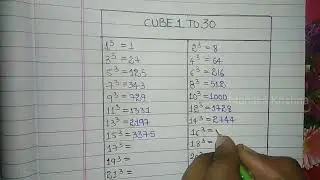 CUBE 1 TO 30
1³ = 1 2³ = 8
3³ = 27 4³ = 64
5³ = 125 6³ = 216
7³ = 343 8³ = 512
9³ = 729 10³ = 1000
11³ = 1331 12³ = 1728
13³ = 2197 14³ = 2744
15³ = 3375 16³ =
17³ = 18³ =
19³ =
21³ =